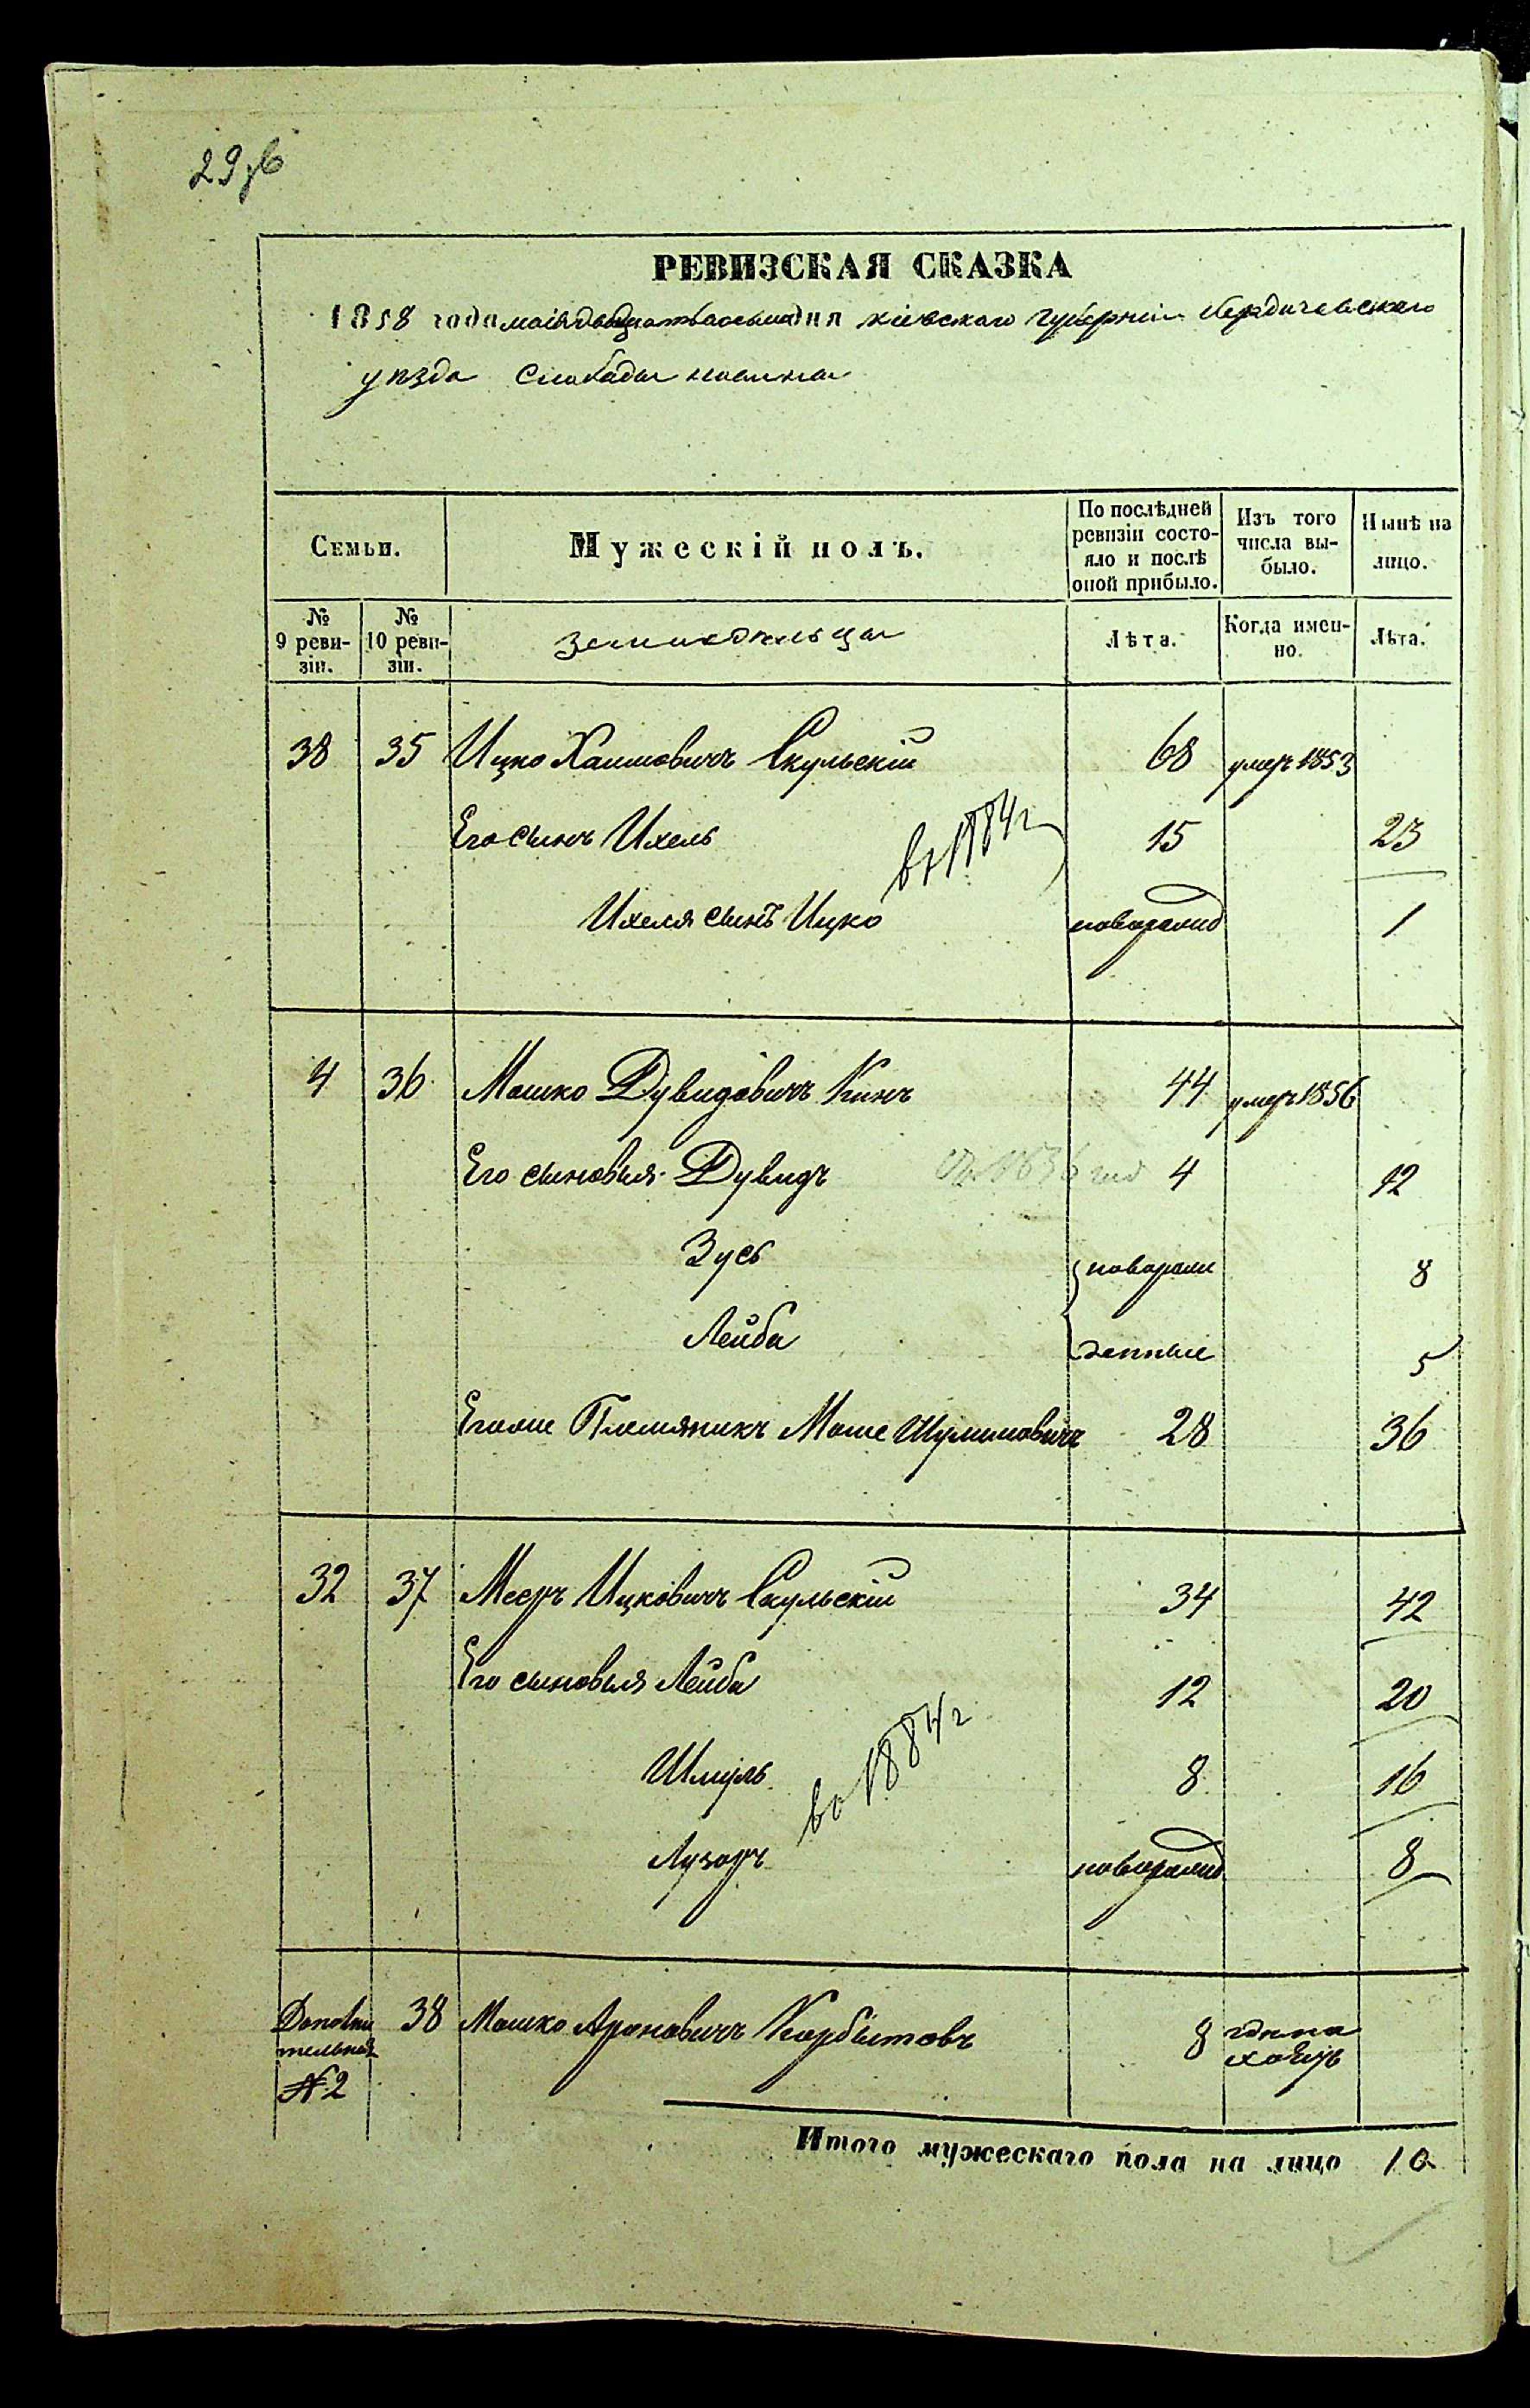 РЕВИЗСКАЯ СКАЗКА
1858 года маія двадцать осьмаго дня Кіевской губерніи Бердичевскаго
уѣзда Слободы
Семьи.
Мужескій полъ.
По послѣдней ревизіи состояло и послѣ оной прибыло.
Изъ того числа выбыло.
Нынѣ на лицо.
№ 9 ревизіи.
№ 10 ревизіи.
земледѣльцы
Лѣта.
Когда именно.
Лѣта.
38 35 Ицко Хаимовичъ Скульскій 68 умеръ 1853
Его сынъ Ихель 15 23
в 1884 г
Ихеля сынъ Ицко новорожд 1
4 36 Мошко Дувидовичъ Кинъ 44 умеръ 1856
Его сыновья Дувидъ 4 12
Зусь новорож 8
Лейба денные 5
Его же Племяникъ Моше Шулимовичъ 28 36
32 37 Мееръ Ицковичъ Скульскій 34 42
Его сыновья Лейба 12 20
Шмуль 8 16
во 1884 г
Лузоръ новорожд 8
Дополнительная №2 38 Мошко Ароновичъ Корбытовъ 8
Итого мужескаго пола на лицо 10